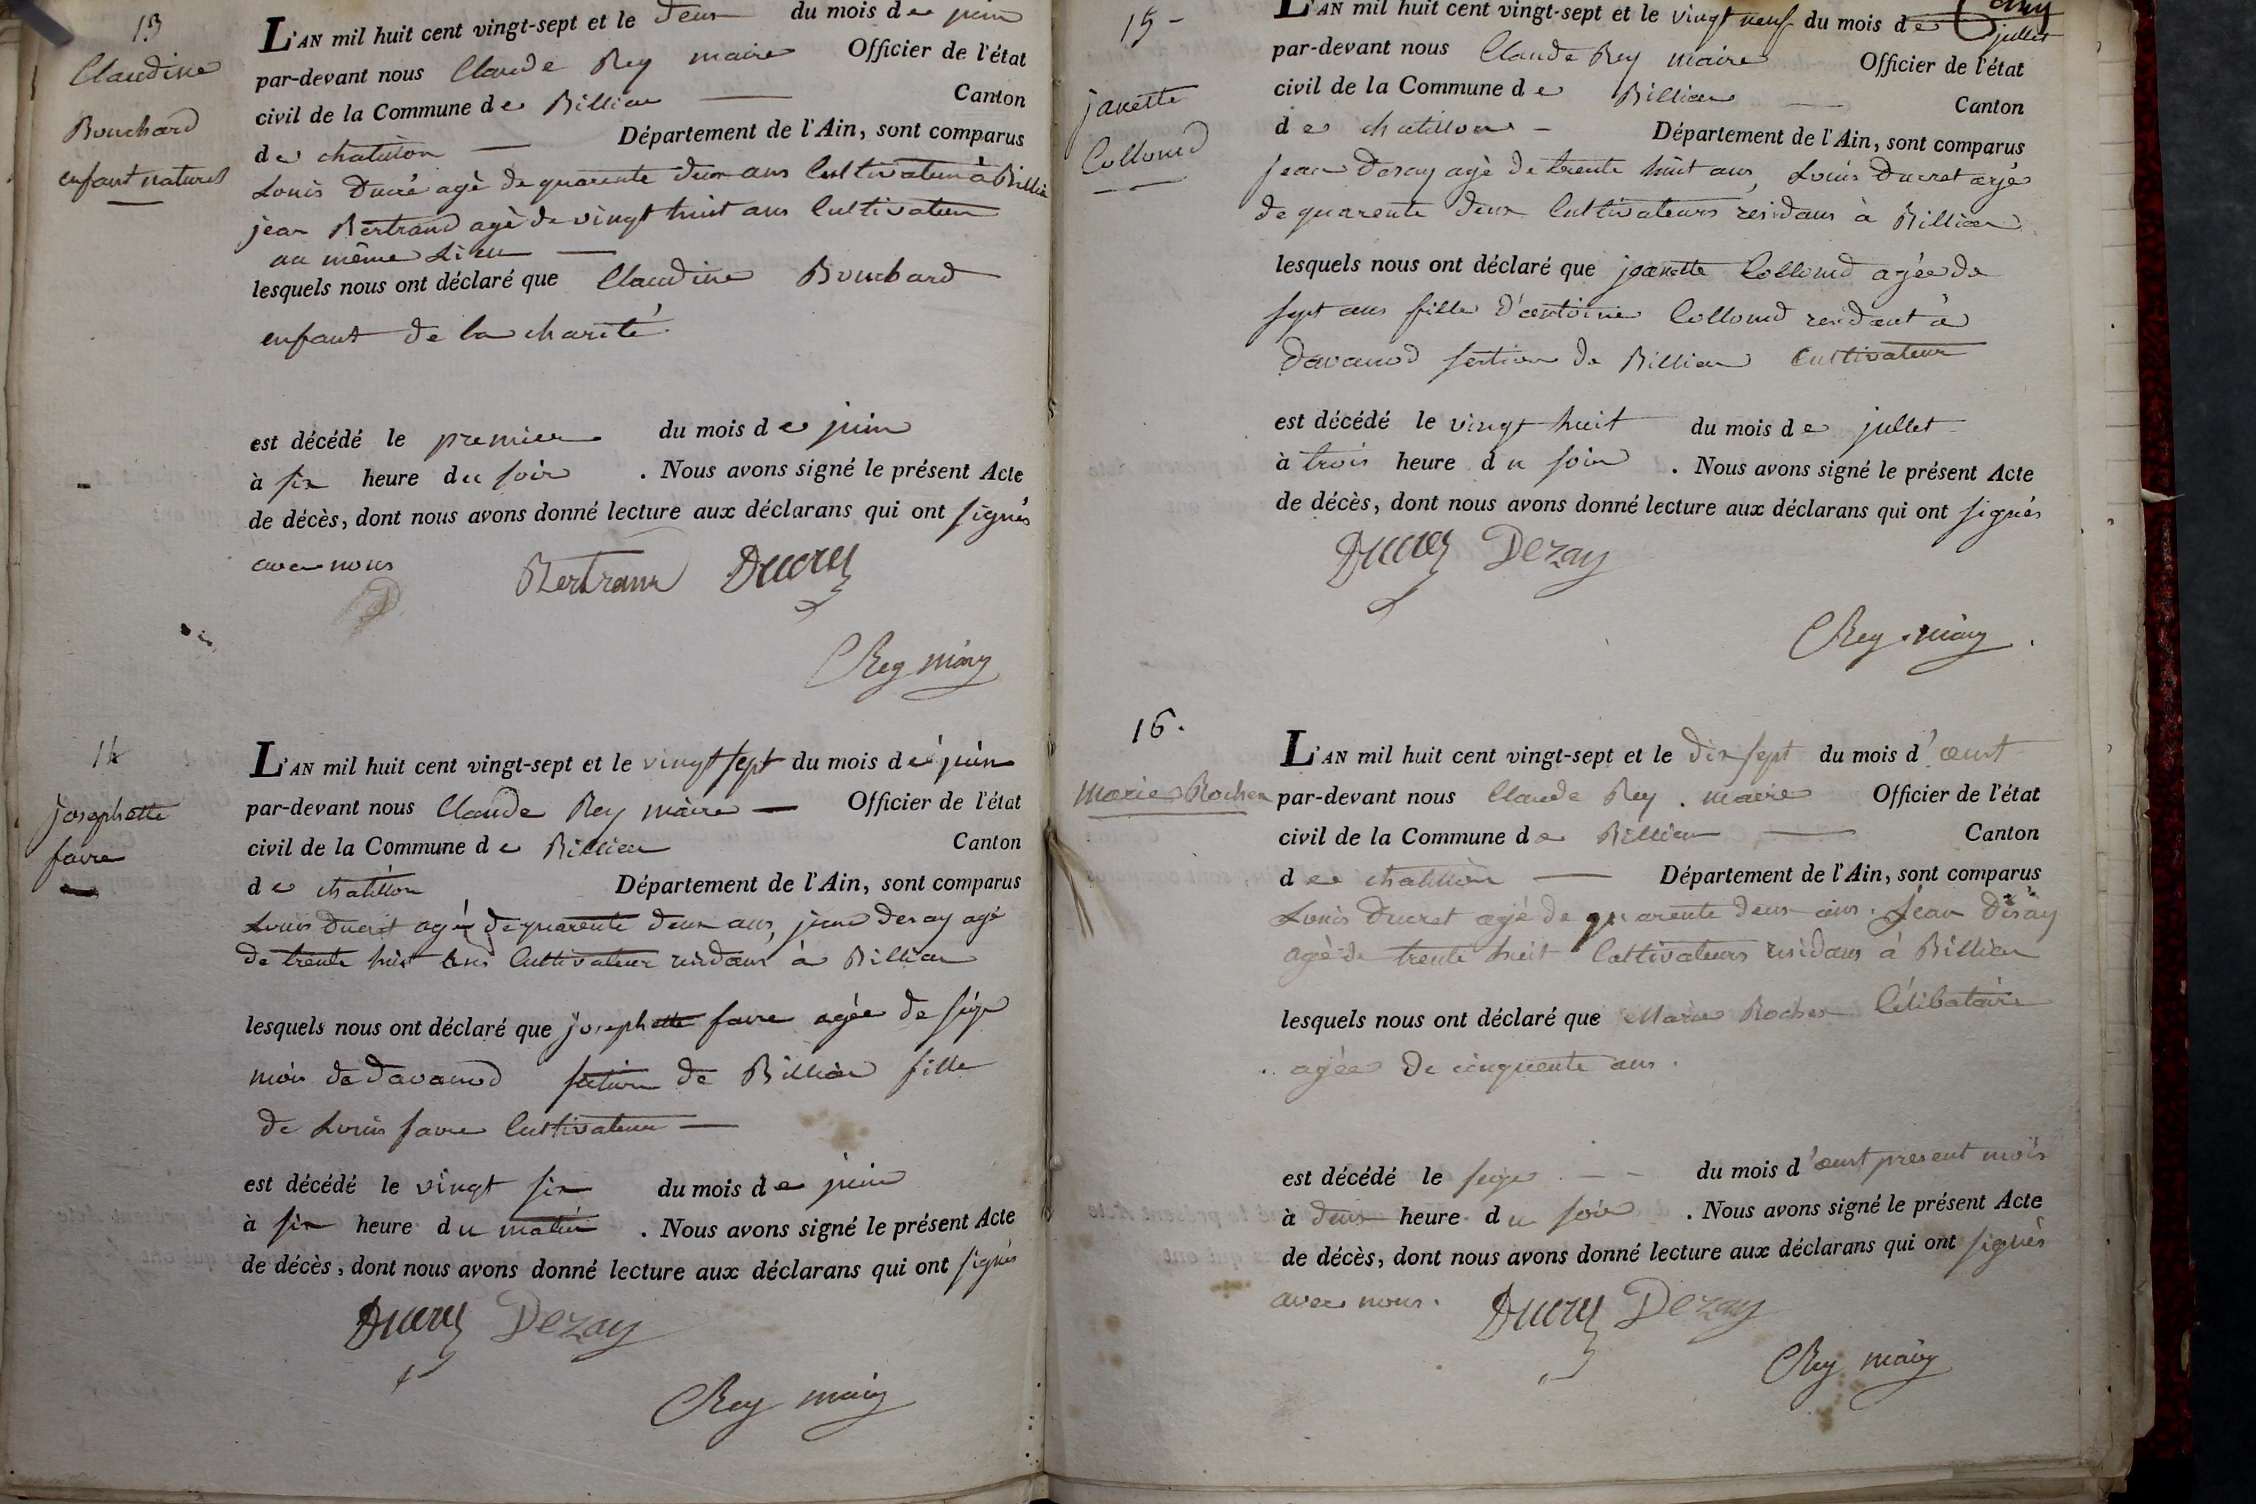 13
Claudine
Bouchard
enfant naturel
L'AN mil huit cent vingt-sept et le deux du mois de juin
par-devant nous Claude Rey maire Officier de l'état
civil de la Commune de Billiea Canton
de chatillon Département de l'Ain, sont comparus
Louis Ducré agé de quarente deux ans Cultivateur à Billiea
jean Bertrand agé de vingt huit ans Cultivateur
au même Lieu
lesquels nous ont déclaré que Claudine Bouchard
enfant de la charité
est décédé le premier du mois de juin
à six heure du soir . Nous avons signé le présent Acte
de décès, dont nous avons donné lecture aux déclarans qui ont signés
avec nous Bertrand Ducret
CRey maire
14
josephette
favre
L'AN mil huit cent vingt-sept et le vingt sept du mois de juin
par-devant nous Claude Rey maire Officier de l'état
civil de la Commune de Billiea Canton
de chatillon Département de l'Ain, sont comparus
Louis Ducret agé de quarente deux ans, jean desay agé
de trente huit ans Cultivateur residans à Billiea
lesquels nous ont déclaré que josephette favre agée de seize
mois de davanod section de Billiea fille
de Louis favre Cultivateur
est décédé le vingt six du mois de juin
à six heure du matin . Nous avons signé le présent Acte
de décès, dont nous avons donné lecture aux déclarans qui ont signés
Ducret Dezay
CRey maire
15
janette
Collomd
L'AN mil huit cent vingt-sept et le vingt neuf du mois de jullet
par-devant nous Claude Rey maire Officier de l'état
civil de la Commune de Billiea Canton
de chatillon Département de l'Ain, sont comparus
jean Desay agé de trente huit ans, Louis Ducret agé
de quarente deux Cultivateurs residans à Billiea
lesquels nous ont déclaré que janette Collomd agée de
sept ans fille d'antoine Collomd residant à
Davanod section de Billiea Cultivateur
est décédé le vingt huit du mois de jullet
à trois heure du soir . Nous avons signé le présent Acte
de décès, dont nous avons donné lecture aux déclarans qui ont signés
Ducret Dezay
CRey maire
16.
Marie Rocher
L'AN mil huit cent vingt-sept et le dix sept du mois d'aout
par-devant nous Claude Rey maire Officier de l'état
civil de la Commune de Billiea Canton
de chatillon Département de l'Ain, sont comparus
Louis Ducret agé de quarente deux ans. Jean Désay
agé de trente huit Cultivateurs residans à Billiea
lesquels nous ont déclaré que Marie Rocher Célibataire
agée de cinquente ans.
est décédé le seize du mois d'aout present mois
à deux heure du soir . Nous avons signé le présent Acte
de décès, dont nous avons donné lecture aux déclarans qui ont signés
avec nous. Ducret Dezay
CRey maire